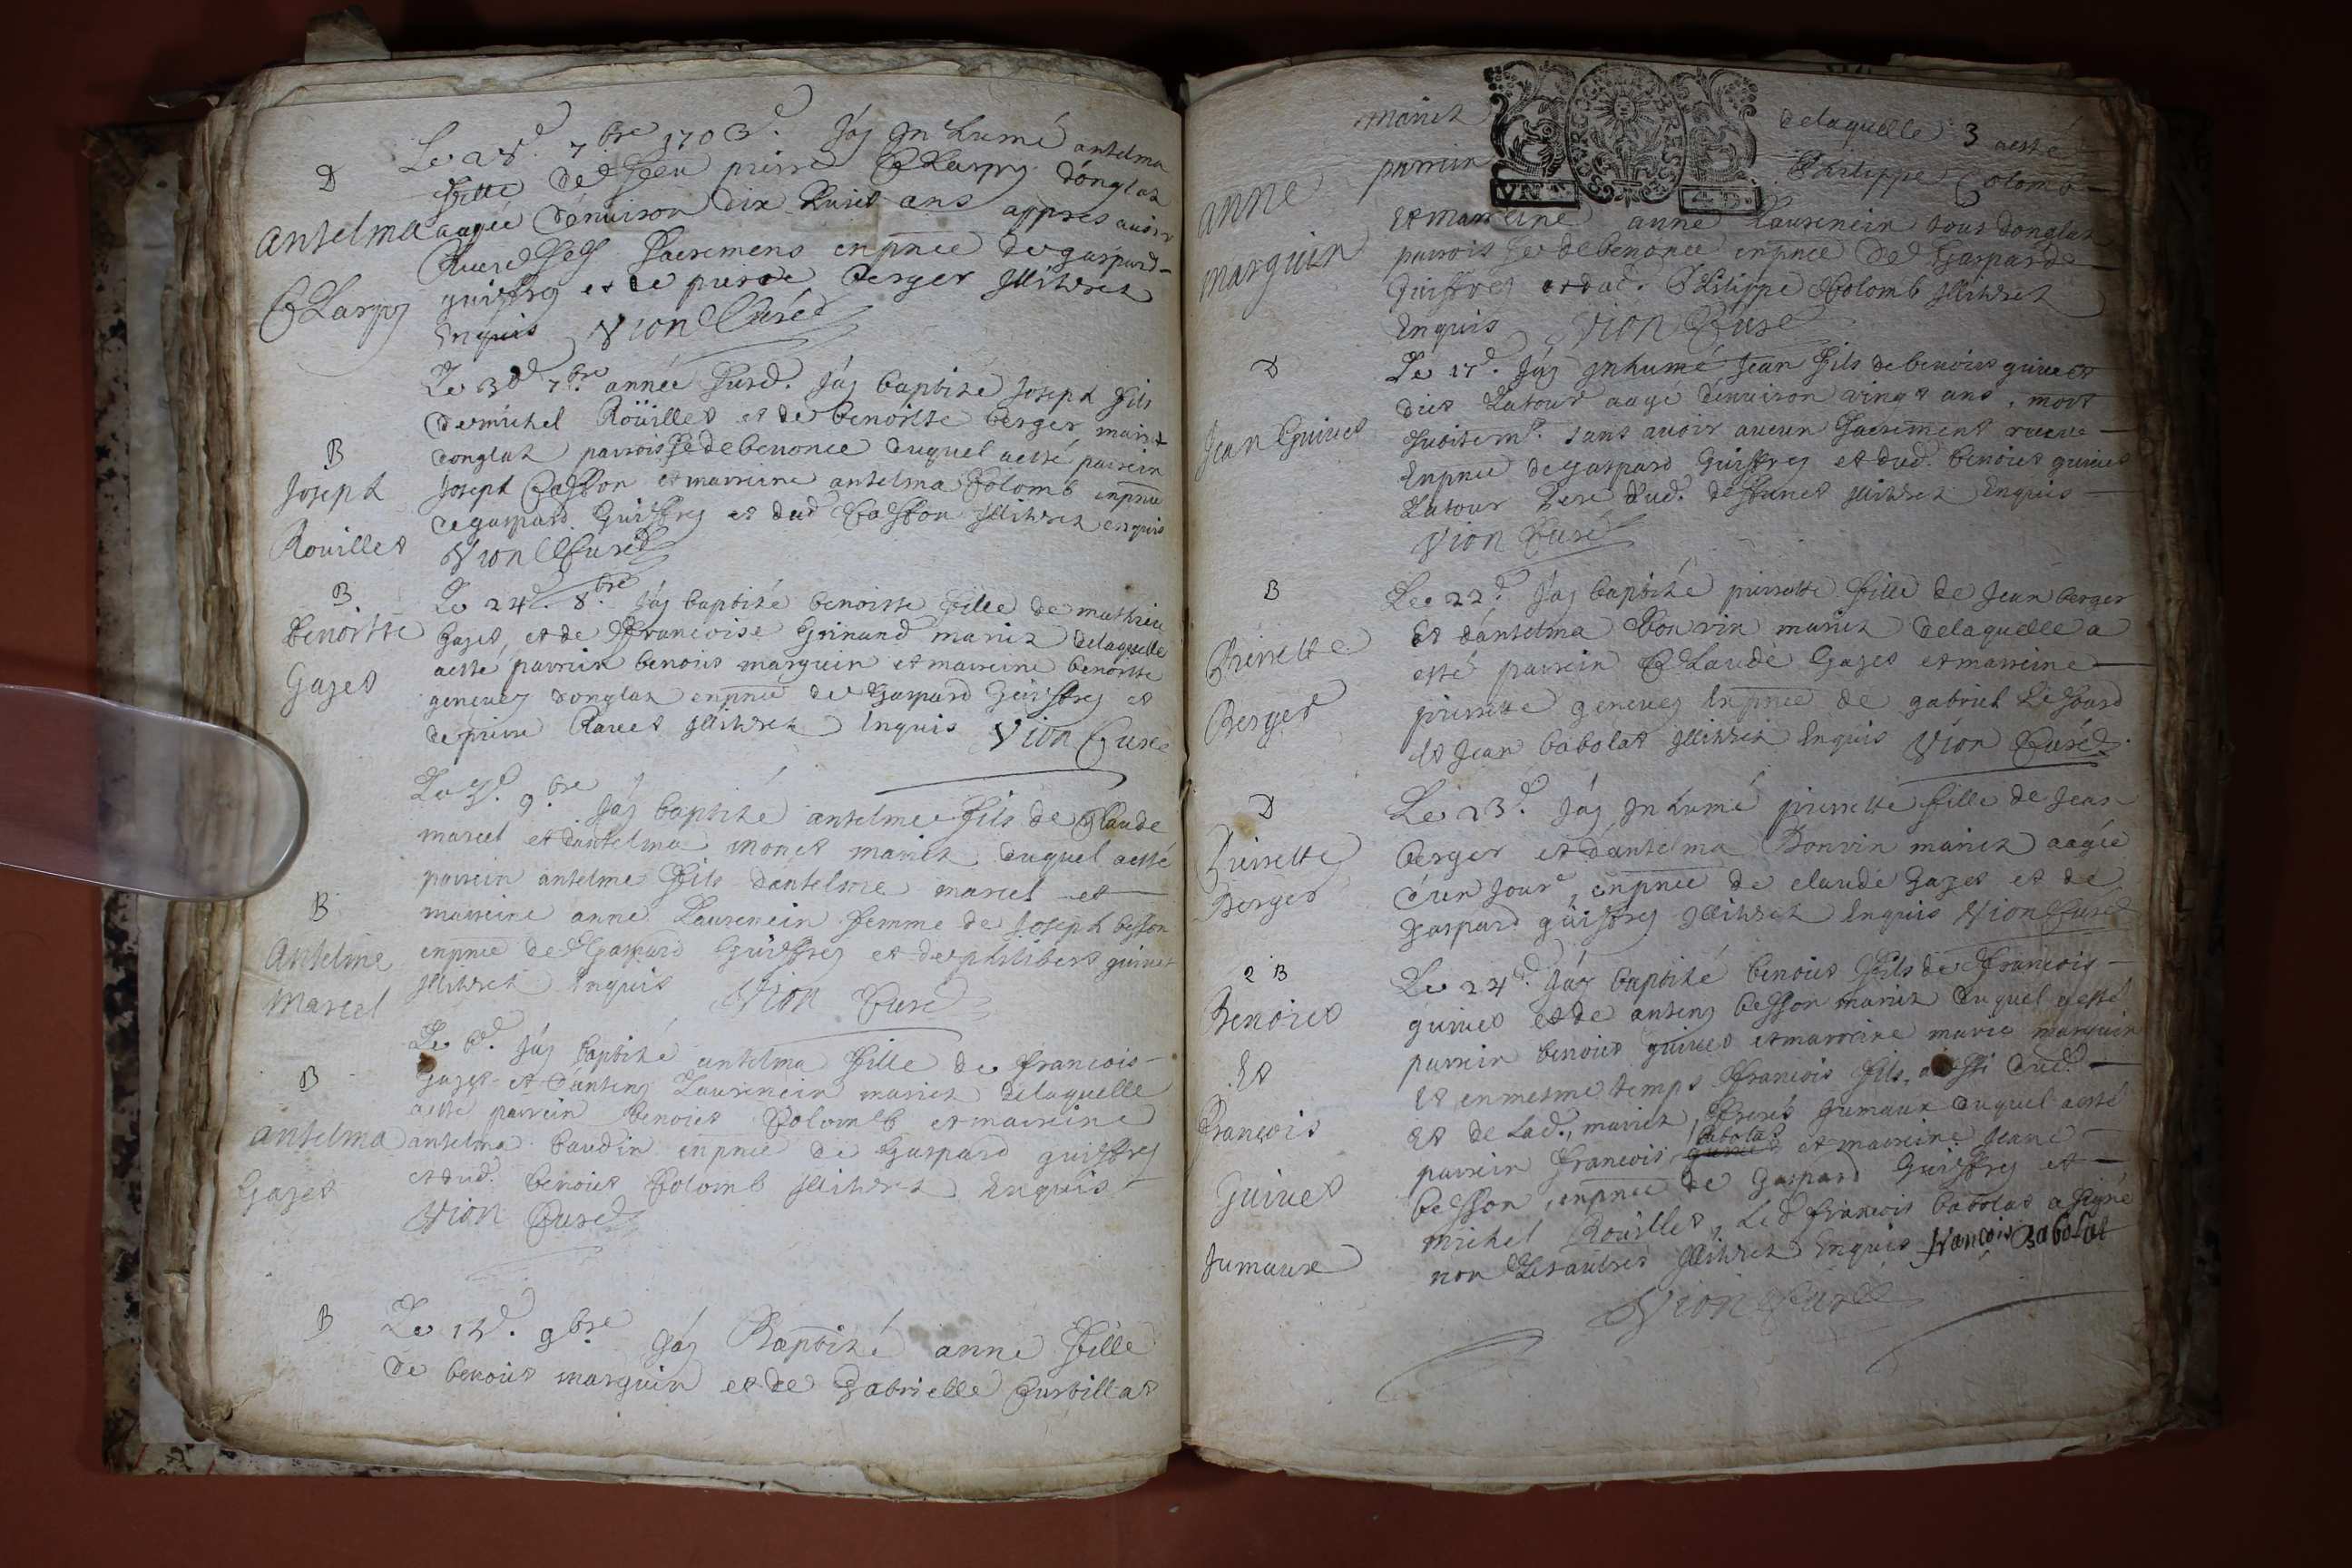 D
Antelma
Clarpy
Le 28e. 7bre 1703e. Jáy Jnhumé antelma
fille de feu pierre Clarpy dónglas
aagée d'énuiron dix huict ans appres auoir
Receu ses Sacremens enpnce de gaspard
guiffrey et de pierre berger Illitrez
Enquis Vion Curé
B
Joseph
Rouillet
Le 30e 7bre année susd. Jáy baptizé Joseph fils
de michel Roüillet et de benoiste berger mariez
donglas parroisse de benonce duquel aesté parrein
Joseph Casson et marreine antelma Colomb enpnce
de gaspard Guiffrey et dud Casson Illitrez enquis
Vion Curé
B
Benoiste
Gazet
Le 24e. 8bre Jáy baptizé benoiste fille de mathieu
Gazet, et de francoise Grinand mariez delaquelle
aesté parrein benoict marguin et marreine benoiste
geneuey donglas enpnce de Gaspard Guiffrey et
de pierre Rauet Illitrez Enquis Vion Curé
B
Antelme
Marcel
Le 9bre Jáy baptizé antelme fils de Claude
marcel et dantelma monet mariez duquel aesté
parrein antelme fils dantelme marcel et
marreine anne Laurencin femme de Joseph besson
enpnce de Gaspard Guiffrey et de philibert guinet
Illitrez Enquis Vion Curé
B
Antelma
Gazet
Le 8e. Jáy baptizé antelma fille de francois
Gazet et d'anteny Laurencin mariez delaquelle
aesté parrein benoict Colomb et marreine
antelma baudin enpnce de Gaspard guiffrey
et dud. benoict Colomb Illitrez Enquis
Vion Curé
B
Le 12e. 9bre Jáy Baptizé anne fille
de benoict marguin et de Gabrielle Curtillat
anne
marguin
mariez delaquelle 3 aesté
parrein Philippe Colomb
VNS
4 D.
et marreine anne Laurencin tous donglas
parroisse de benonce enpnce de Gaspard
Guiffrey et dud. Philippe Colomb Illitrez
Enquis Vion Curé
D
Jean Guinet
Le 17e. Jáy Jnhumé Jean fils de benoict guinet
dict Latour aagé dénuiron vingt ans, mort
subitemt. sans auoir aucun Sacrement receu
Enpnce de gaspard Guiffrey et dud. benoict guinet
Latour Pere dud. deffunct Illitrez Enquis
Vion Curé
B
Pierrette
Berger
Le 22e. Jáy baptizé pierrette fille de Jean berger
Et dántelma Bonvin mariez delaquelle a
esté parrein Claude Gazet et marreine
pierrette geneuey Enpnce de gabriel Lesourd
Et Jean babolat Illitrez Enquis Vion Curé
D
Pierrette
Berger
Le 23e. Jáy Jnhumé pierrette fille de Jean
berger et dántelma Bonvin mariez aagée
d'un Jour, enpnce de claude Gazet et de
Gaspard guiffrey Illitrez Enquis Vion Curé
2 B
Benoict
Et
François
Guinet
Jumaux
Le 24e. Jáy baptizé benoict fils de francois
guinet et de anteny besson mariez duquel aesté
parrein benoict guinet et marreine marie marguin
et en mesme temps francois fils, aussi dud.
Et de Lad., mariez, freres Jumaux duquel aesté
parrein francois guinet babolat et marreine Jeane
besson, enpnce de Gaspard Guiffrey et
michel Rouillet, Led francois babolat a signé
non Lesautres Illitrez Enquis francois Babolat
Vion Curé